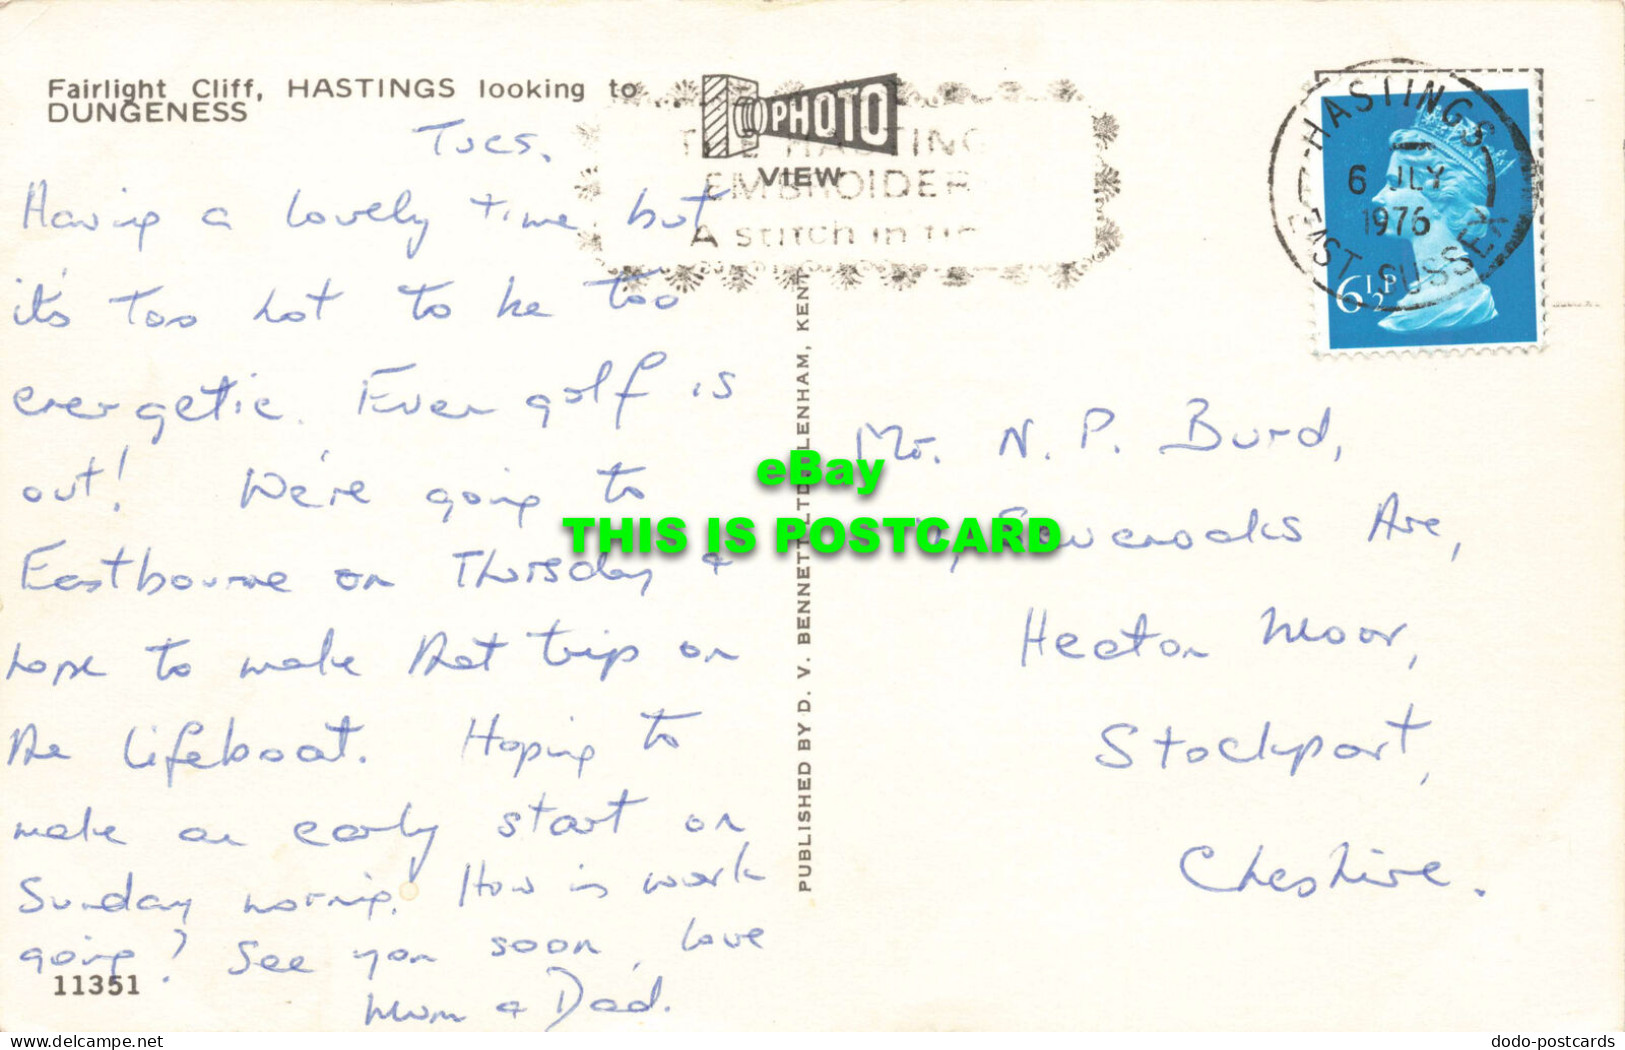 Fairlight Cliff, HASTINGS looking to
DUNGENESS
PHOTO
VIEW
THE HASTINGS
EMBROIDERY
A stitch in time
HASTINGS
6 JLY
1976
EAST SUSSEX
6½P
Tues.
Having a lovely time but
it's too hot to be too
energetic. Even golf is
out! We're going to
Eastbourne on Thursday &
hope to make that trip on
the lifeboat. Hoping to
make an early start on
Sunday morning. How is work
going? See you soon, love
Mum & Dad.
11351
PUBLISHED BY D. V. BENNETT LTD. LENHAM, KENT
Mr. N. P. Burd,
Ave,
Heaton Moor,
Stockport,
Cheshire.
eBay
THIS IS POSTCARD
eBay.com
dodo-postcards